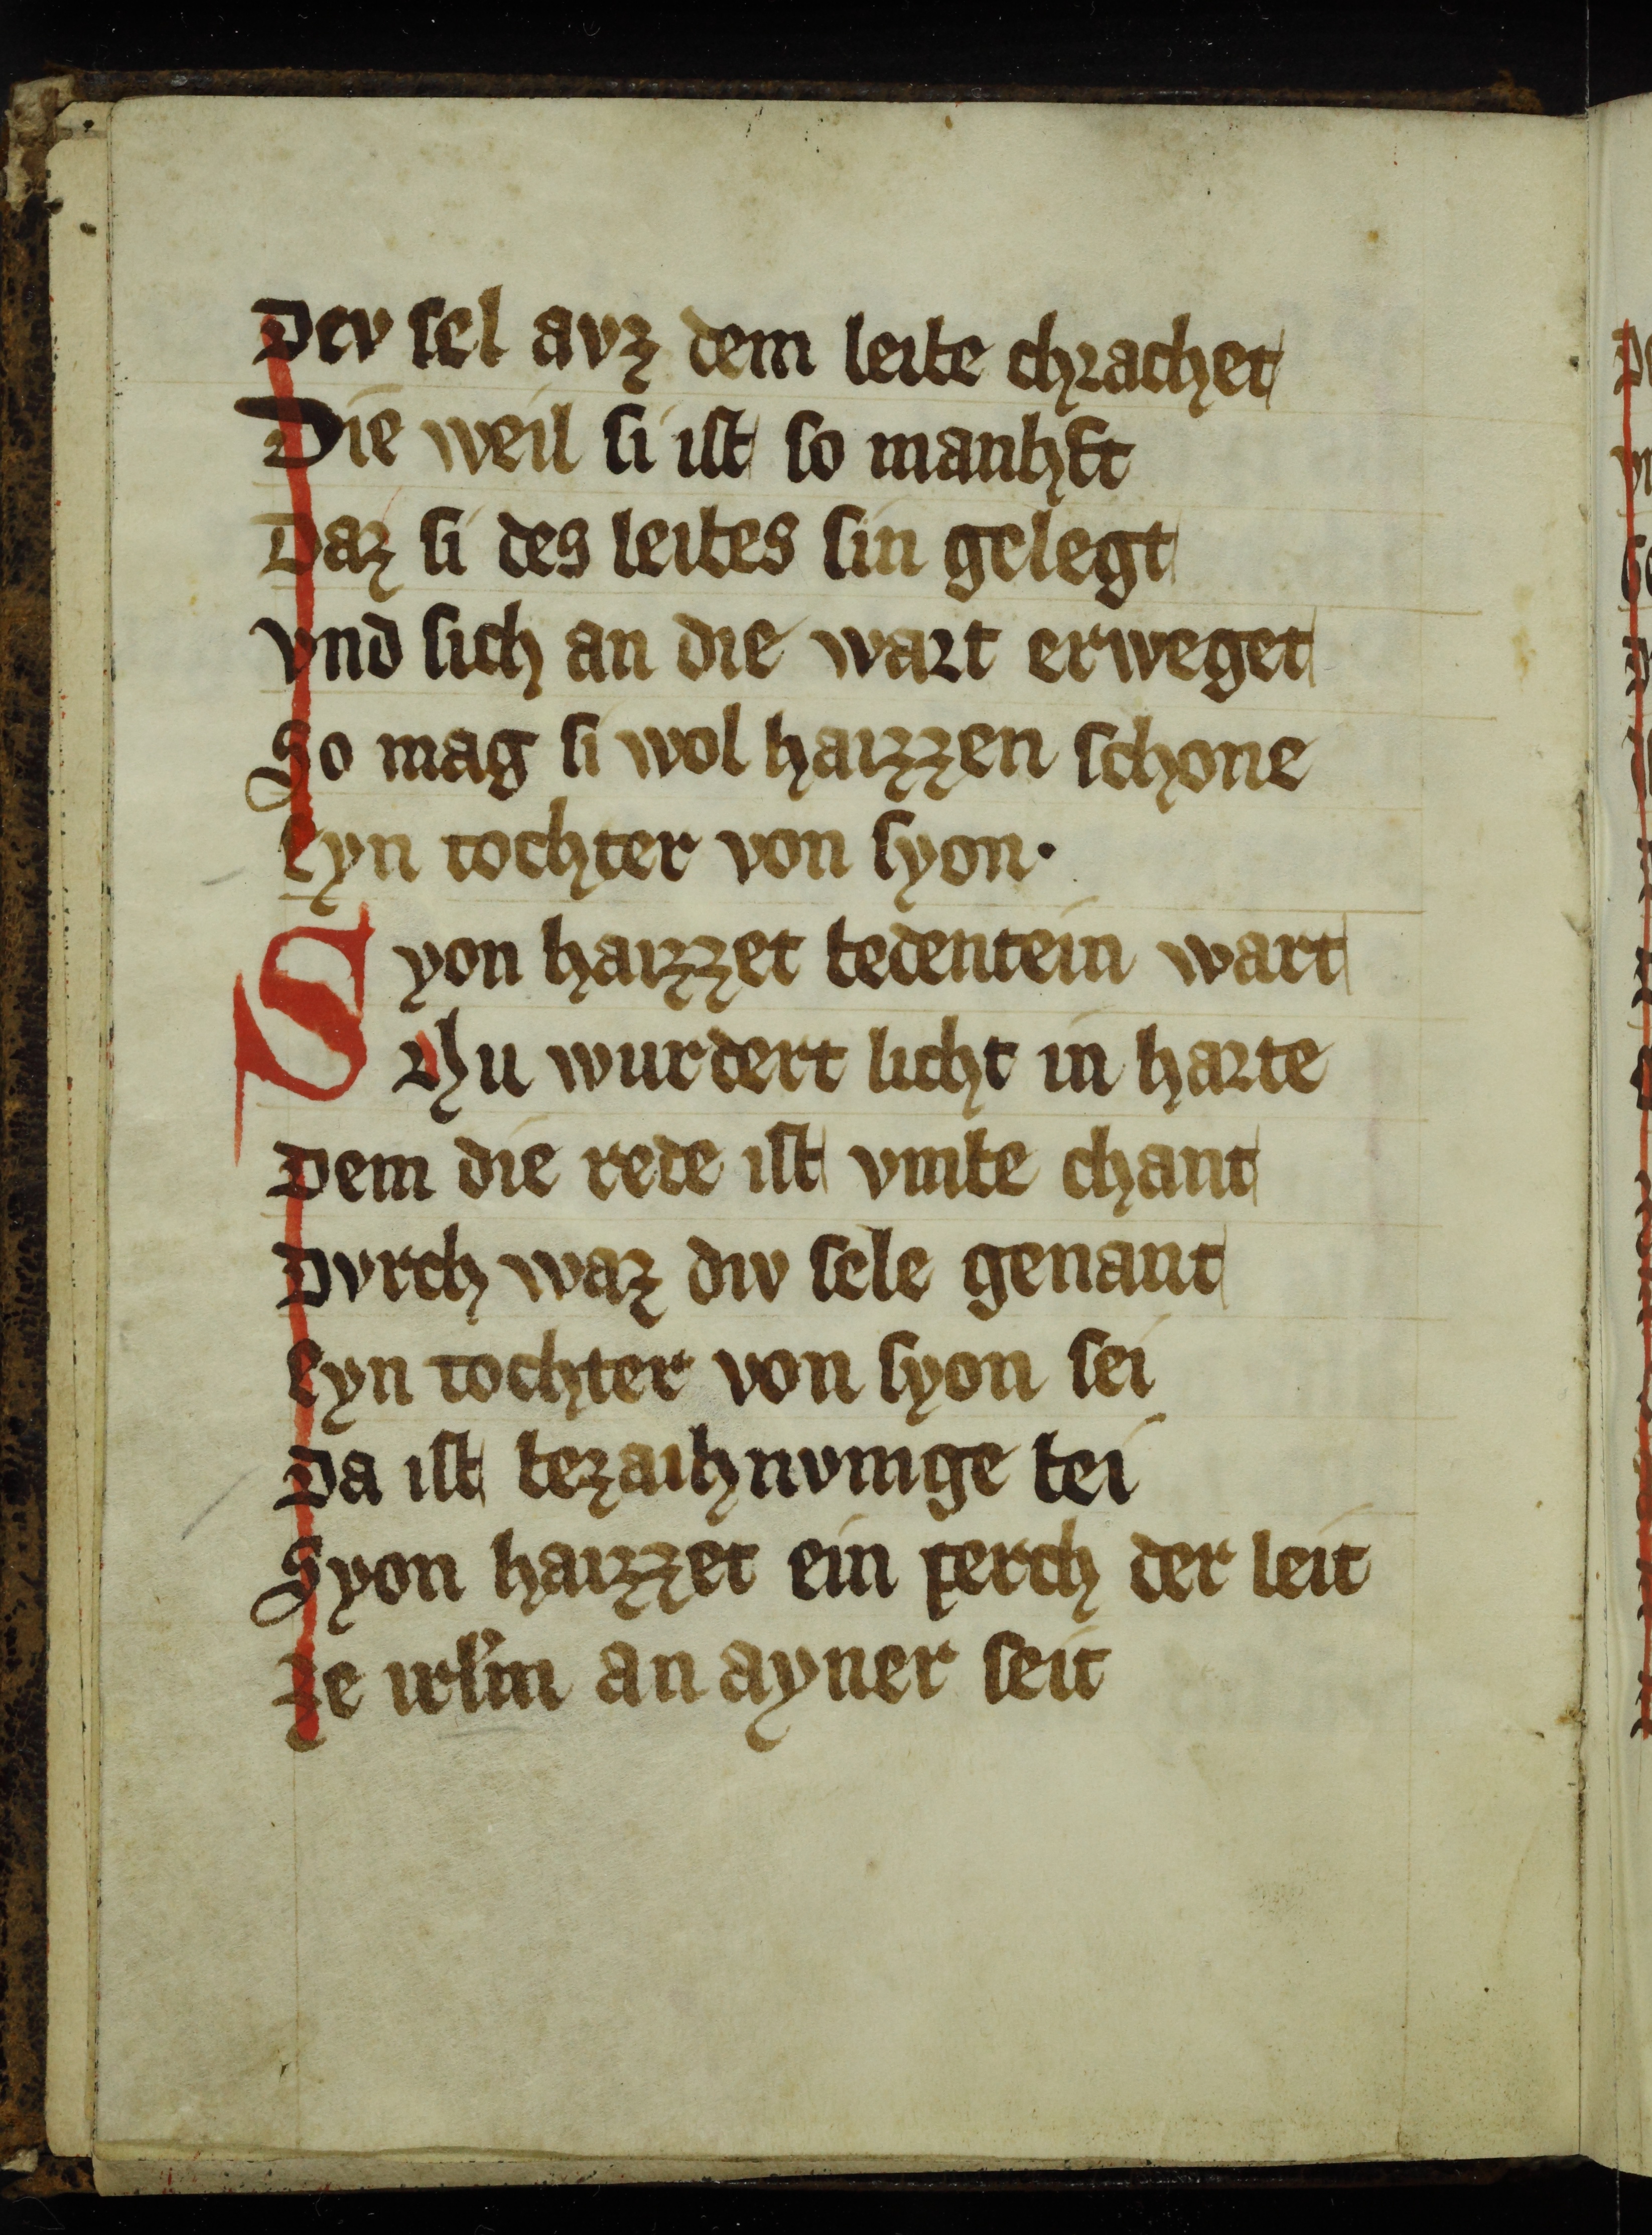 Dev sel avz dem leibe chrachet
Die weil si ist so manhft
Daz si des leibes sin gelegt
vnd sich an die wart erweget
So mag si wol haizzen schone
Eyn tochter von syon.
Syon haizzet bedentein wart
Nu wurdert licht in harte
Dem die rede ist vmbe chant
Dvrch waz div sele genant
Eyn tochter von syon sei
Da ist bezaihnvnge bei
Syon haizzet ein perch der leit
ze irlm an ayner seit